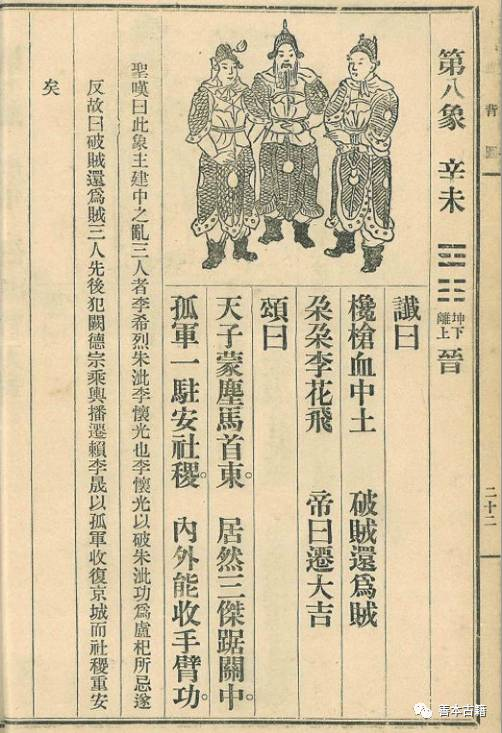 第八象 辛未 坤下離上 晉
讖曰
欃槍血中土 破賊還為賊
朶朶李花飛 帝曰遷大吉
頌曰
天子蒙塵馬首東。 居然三傑踞關中。
孤軍一駐安社稷。 內外能收手臂功。
聖嘆曰此象主建中之亂三人者李希烈朱泚李懷光也李懷光以破朱泚功為盧杞所忌遂
反故曰破賊還為賊三人先後犯闕德宗乘輿播遷賴李晟以孤軍收復京城而社稷重安
矣
背
二十二
善本古籍